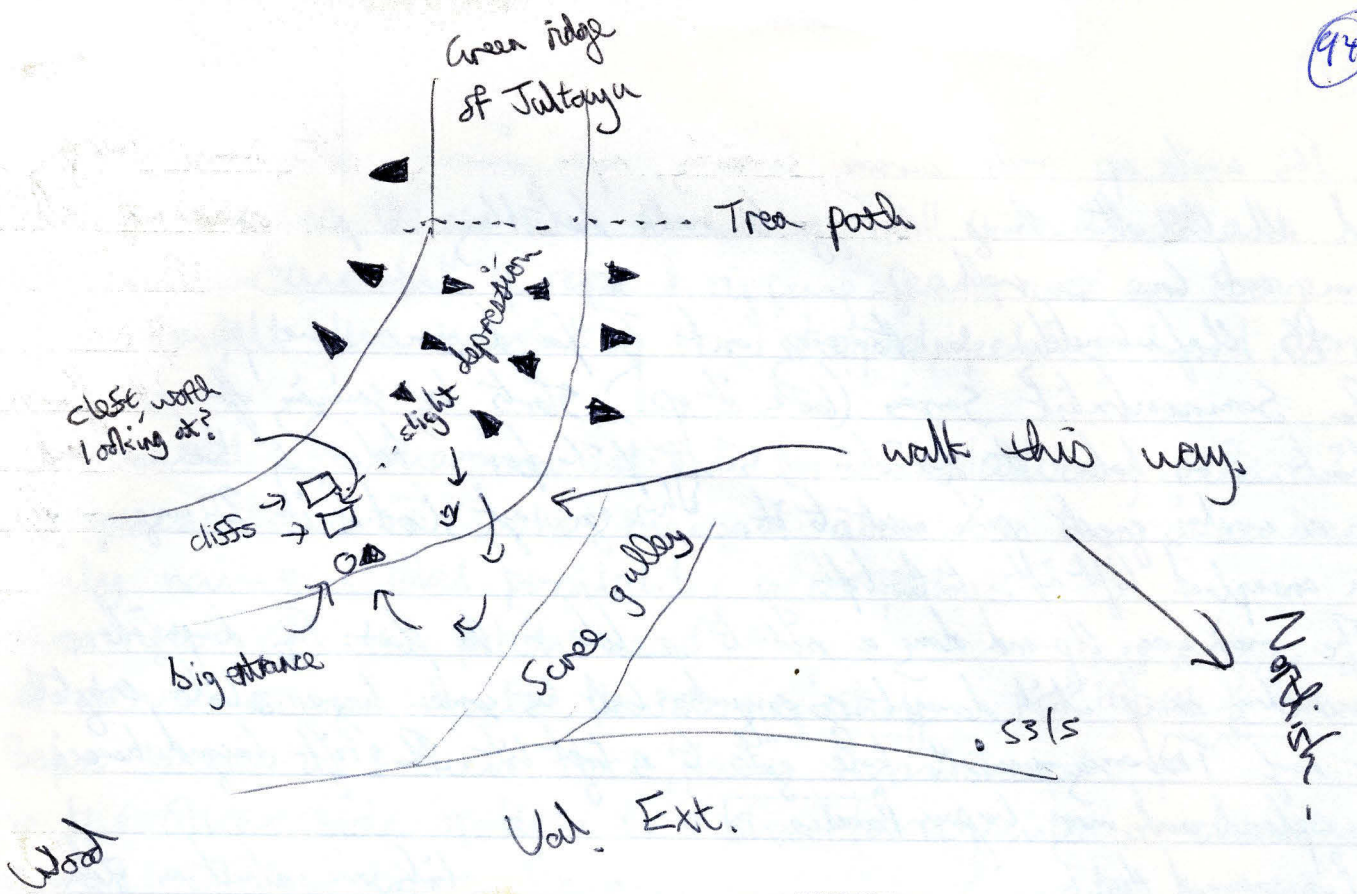 94
Green ridge
of Jultayu
Trea path
slight depression
cleft, worth
looking at?
cliffs
walk this way.
big entrance
Scree gulley
Northish.
. 53/5
Val. Ext.
Wood